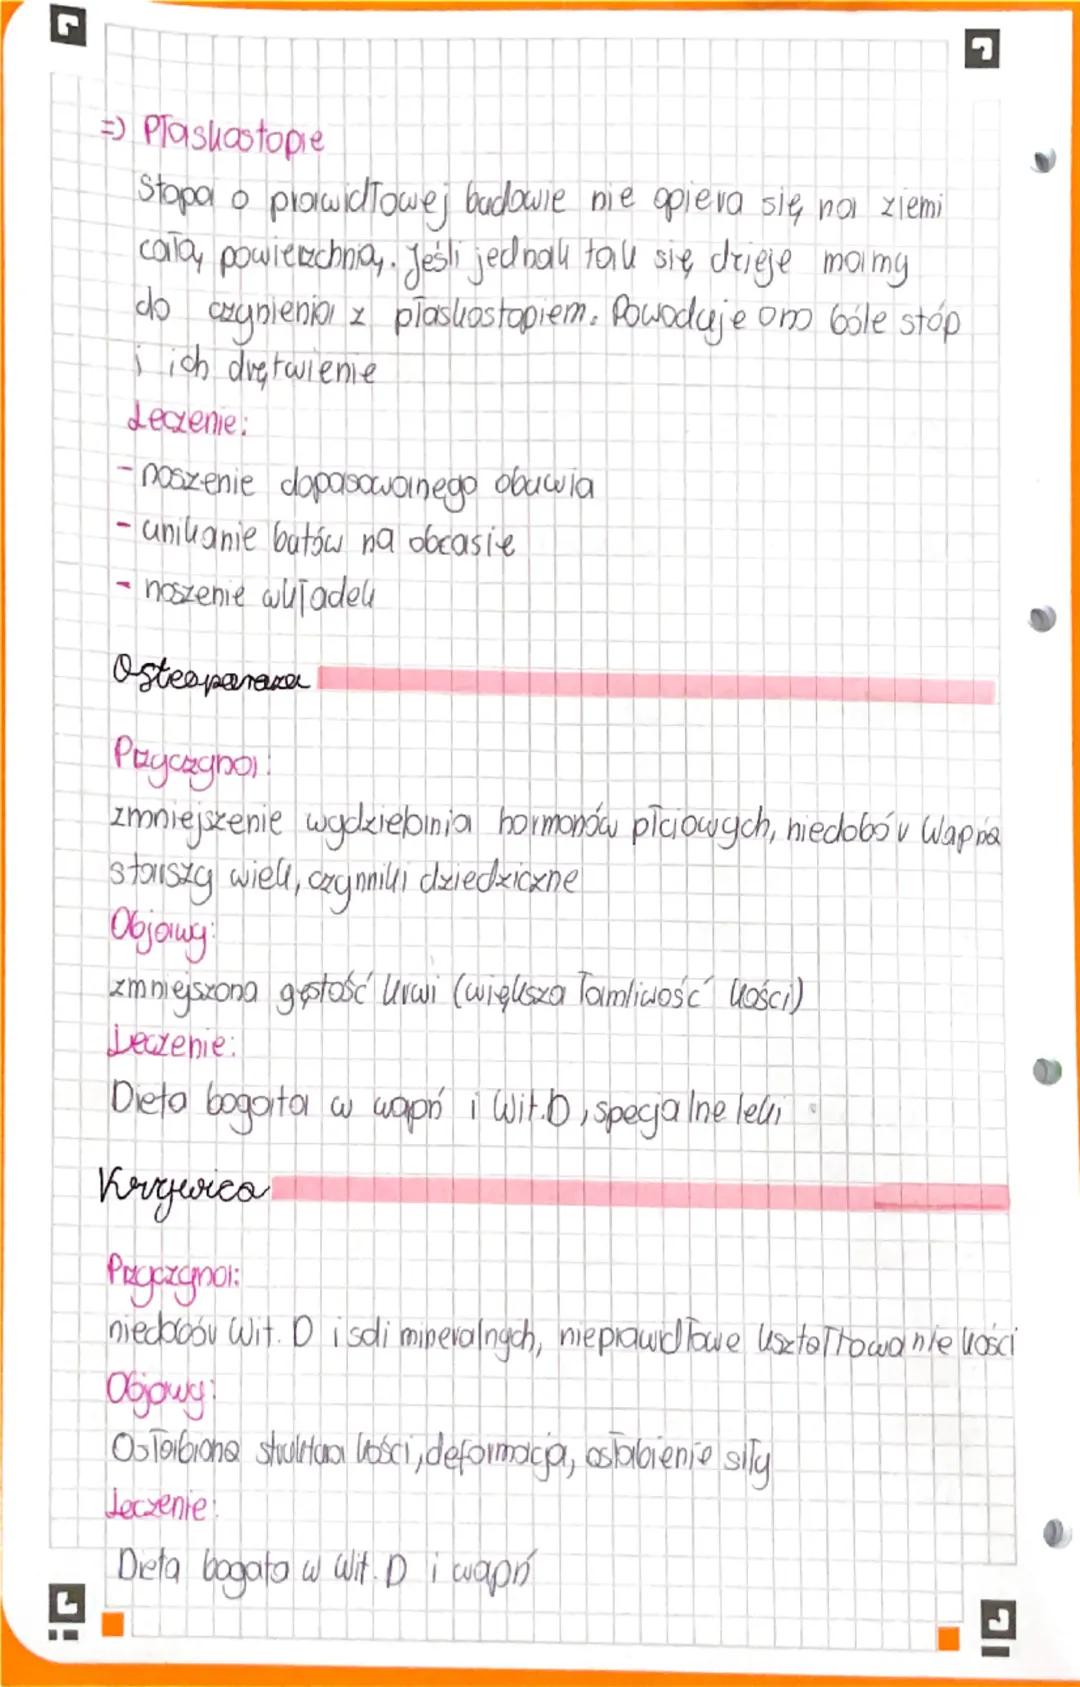 => Płaskostopie
Stopa o prawidłowej budowie nie opiera się na ziemi
całą powierzchnią. Jeśli jednak tak się dzieje mamy
do czynienia z płaskostopiem. Powoduje ono bóle stóp
i ich drętwienie
Leczenie:
- noszenie dopasowanego obuwia
- unikanie butów na obcasie
- noszenie wkładek
Osteoporoza
Przyczyna:
zmniejszenie wydzielania hormonów płciowych, niedobór wapna
starszy wiek, czynniki dziedziczne
Objawy:
zmniejszona gęstość krwi (większa łamliwość kości)
Leczenie:
Dieta bogata w wapń i Wit.D, specjalne leki
Krzywica
Przyczyna:
niedobór Wit. D i soli mineralnych, nieprawidłowe kształtowanie kości
Objawy:
Osłabiona struktura kości, deformacja, osłabienie siły
Leczenie:
Dieta bogata w Wit. D i wapń